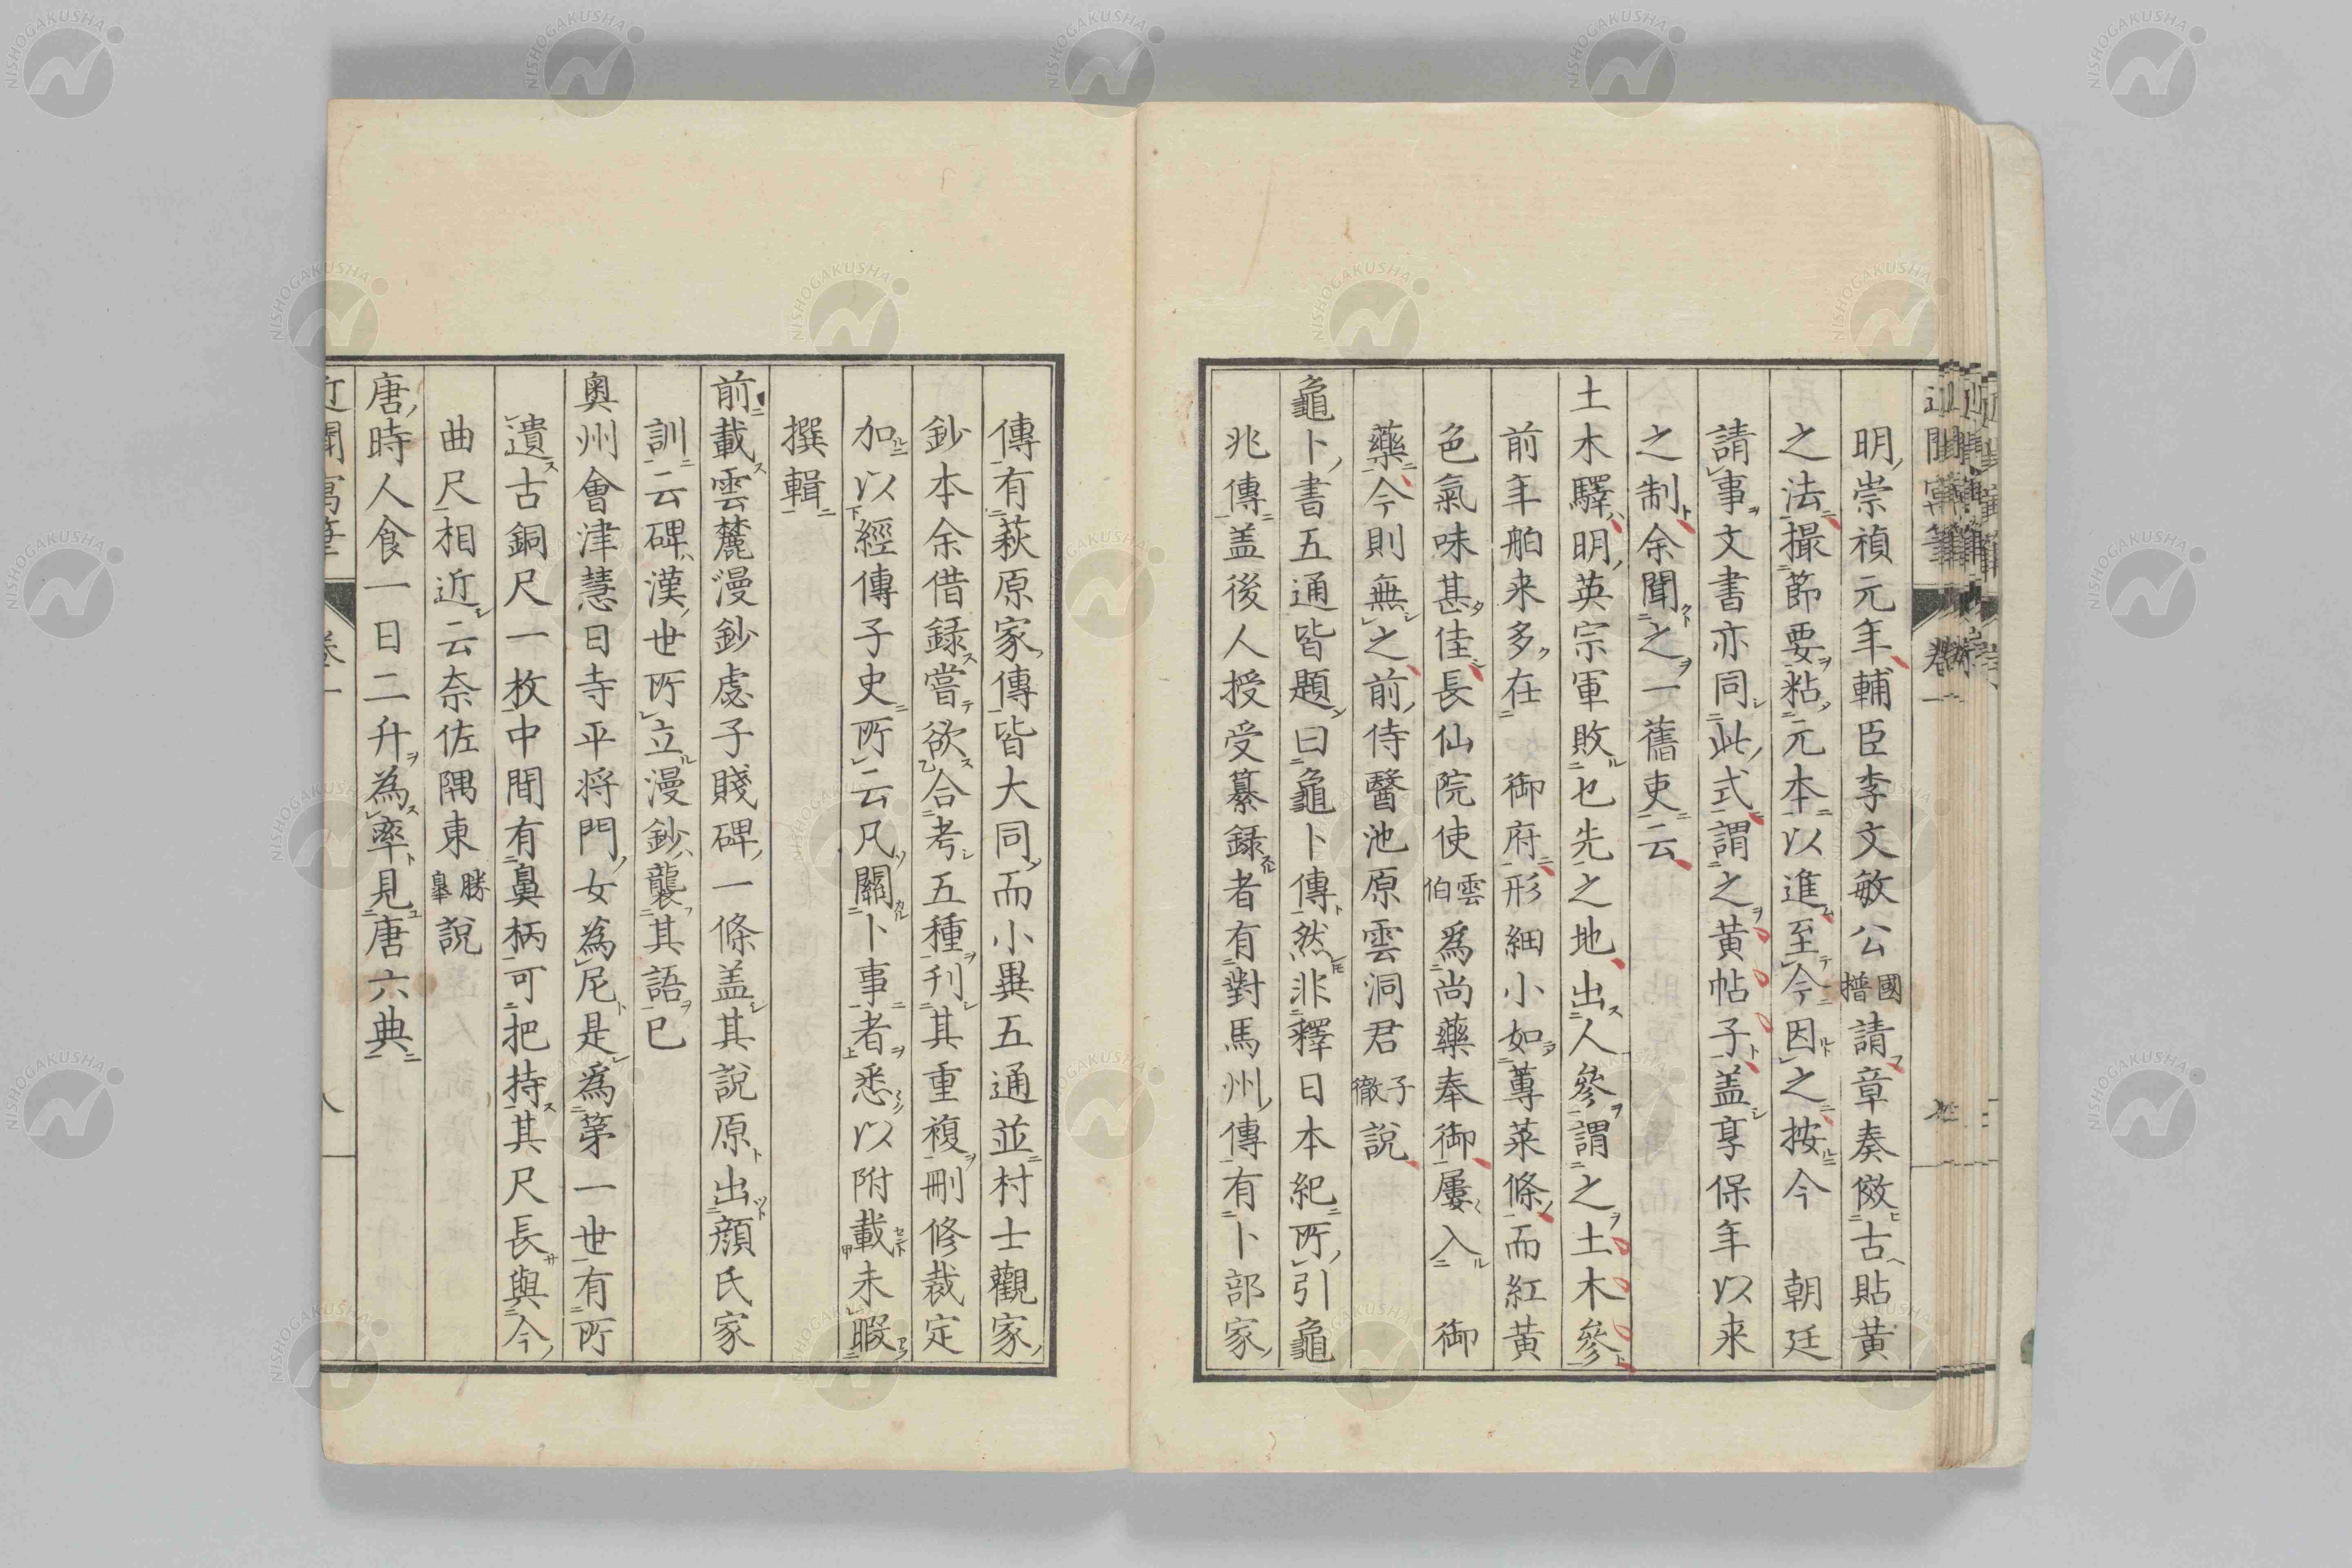 明崇禎元年輔臣李文敏公國𣚴請章奏倣古貼黃
之法撮節要粘元本以進至今因之按今 朝廷
請事文書亦同此式謂之黃帖子盖享保年以来
之制余聞之一舊吏云
土木驛明英宗軍敗也先之地出人參謂之土木參
前年舶来多在 御府形細小如蓴菜條而紅黃
色氣味甚佳長仙院使雲伯爲尚藥奉御屢入 御
藥今則無之前侍醫池原雲洞君子徹說
龜卜書五通皆題曰龜卜傳然非釋日本紀所引龜
兆傳盖後人授受纂録者有對馬州傳有卜部家
傳有萩原家傳皆大同而小異五通並村士觀家
鈔本余借録嘗欲合考五種刊其重複刪修裁定
加以經傳子史所云凡關卜事者悉以附載未暇
撰輯
前載雲麓漫鈔處子賤碑一條盖其說原出顔氏家
訓云碑漢世所立漫鈔襲其語已
奥州會津慧日寺平将門女為尼是爲第一世有所
遺古銅尺一枚中間有鼻柄可把持其尺長與今
曲尺相近云奈佐隅東勝皋說
唐時人食一日二升為率見唐六典
近聞寓筆 卷一